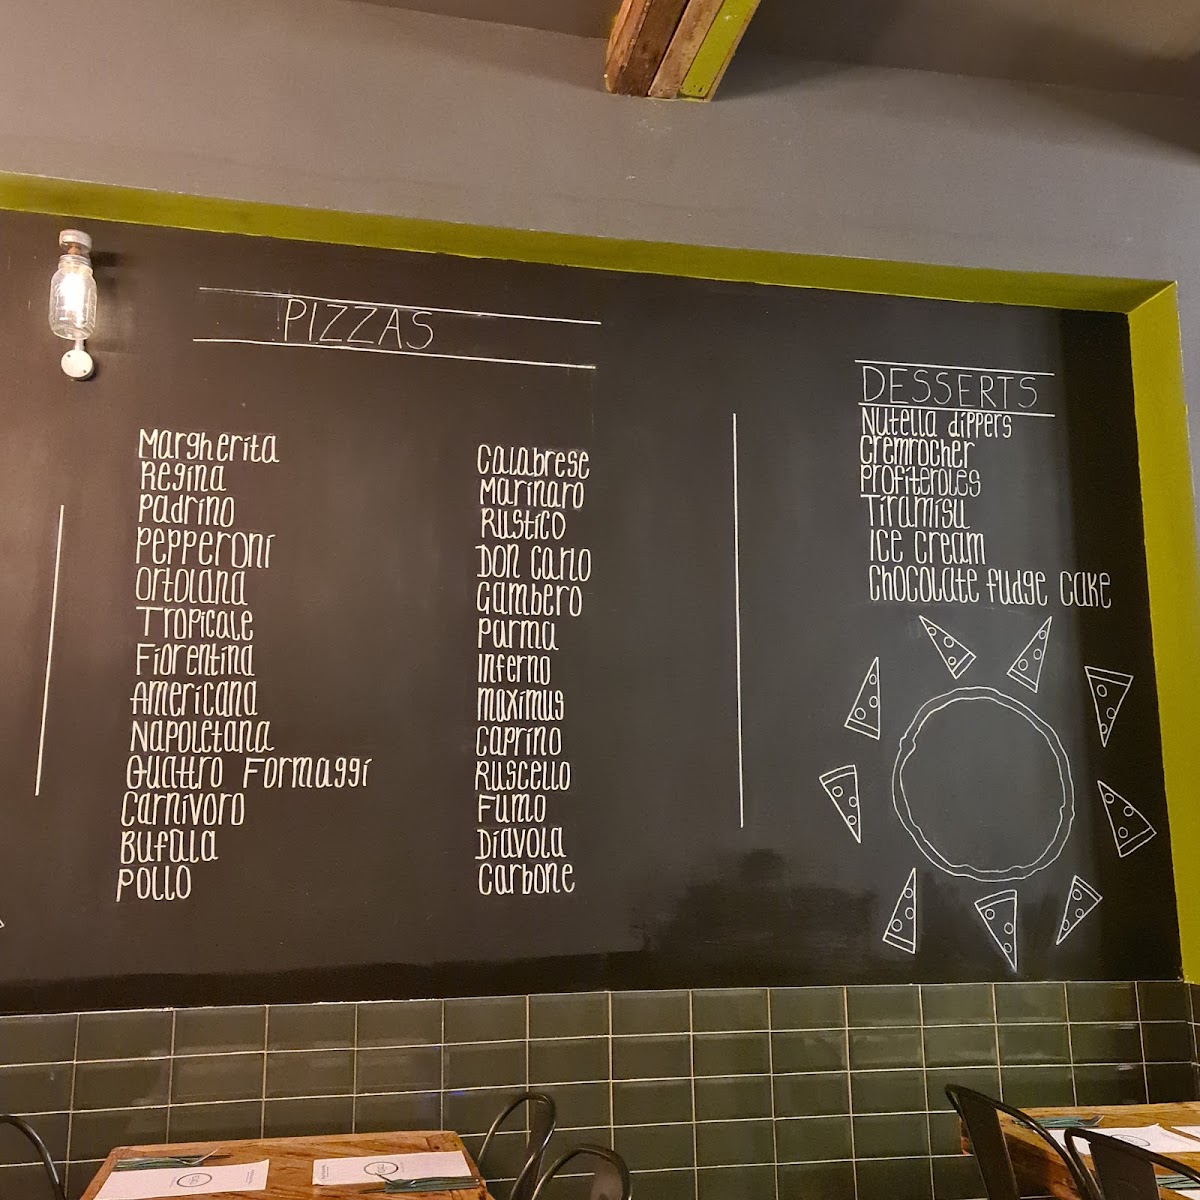 PIZZAS
Margherita
Regina
Padrino
Pepperoni
Ortolana
Tropicale
Fiorentina
Americana
Napoletana
Quattro Formaggi
Carnivoro
Bufala
Pollo
Calabrese
Marinaro
Rustico
Don Carlo
Gambero
Parma
Inferno
Maximus
Caprino
Ruscello
Fumo
Diavola
Carbone
DESSERTS
Nutella dippers
Cremrocher
Profiteroles
Tiramisu
Ice cream
Chocolate fudge cake